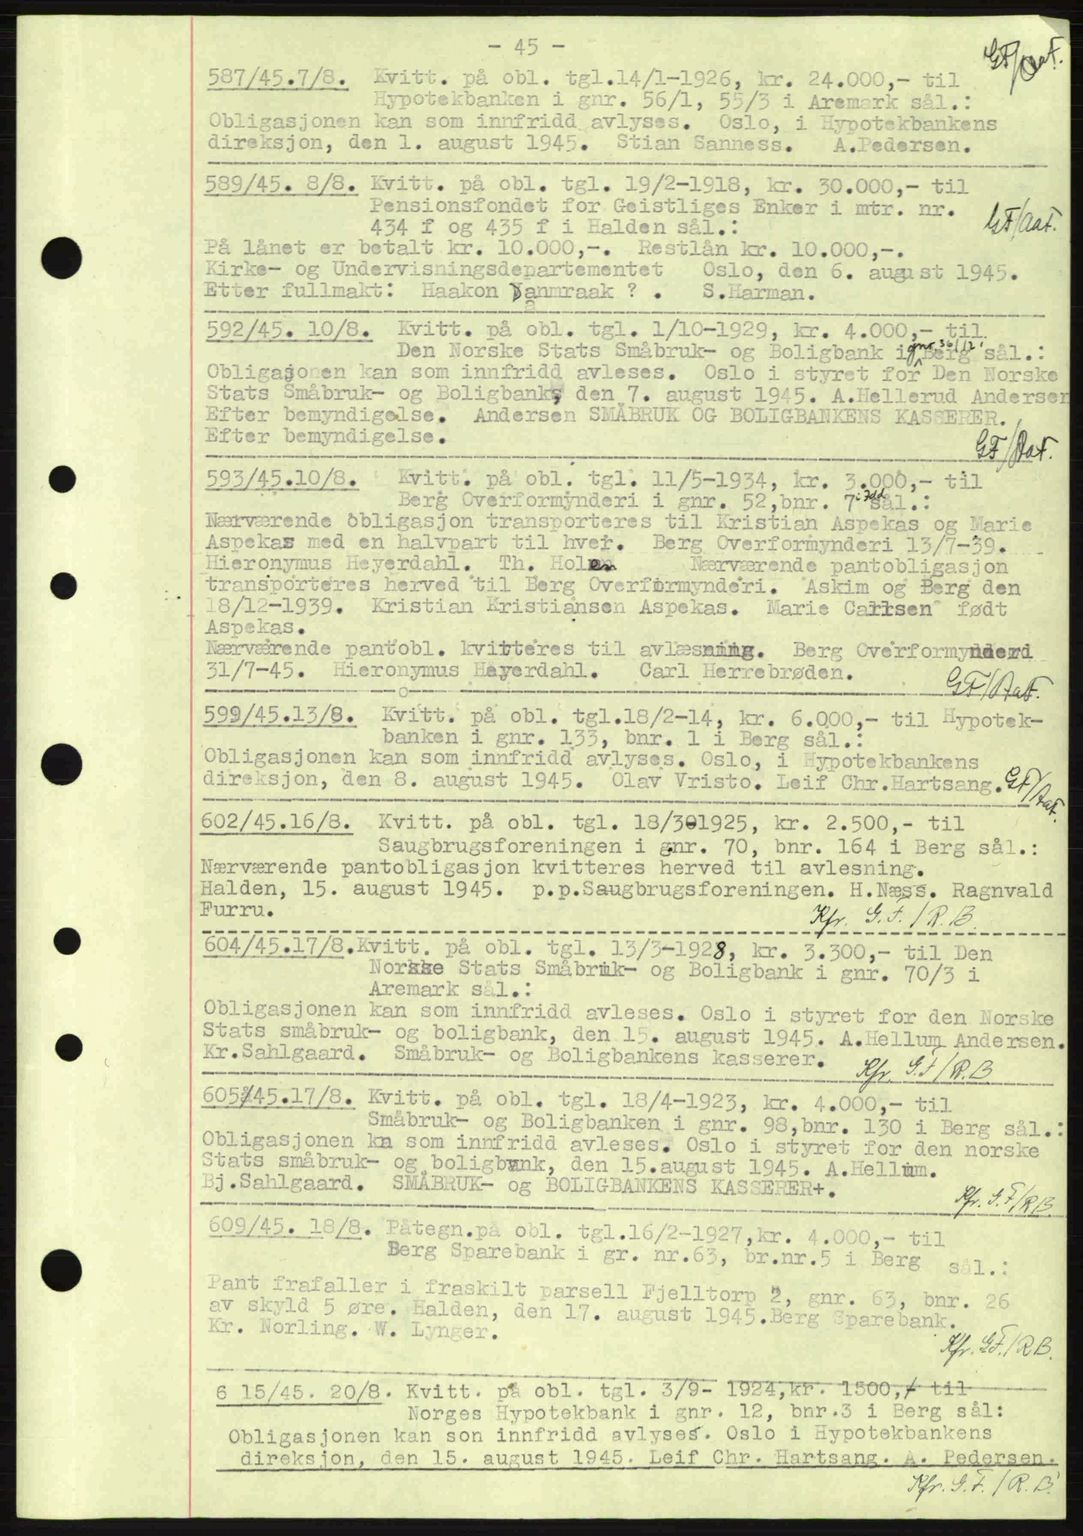 - 45 -
GF/AaF.
587/45.7/8. Kvitt. på obl. tgl.14/1-1926, kr. 24.000,- til
Hypotekbanken i gnr. 56/1, 55/3 i Aremark sål.:
Obligasjonen kan som innfridd avlyses. Oslo, i Hypotekbankens
direksjon, den 1. august 1945. Stian Sanness. A.Pedersen.
589/45. 8/8. Kvitt. på obl. tgl. 19/2-1918, kr. 30.000,- til
Pensionsfondet for Geistliges Enker i mtr. nr.
434 f og 435 f i Halden sål.:
GF/AaF.
På lånet er betalt kr. 10.000,-. Restlån kr. 10.000,-.
Kirke- og Undervisningsdepartementet Oslo, den 6. august 1945.
Etter fullmakt: Haakon Danmraak ? . S.Harman.
592/45. 10/8. Kvitt. på obl. tgl. 1/10-1929, kr. 4.000,- til
Den Norske Stats Småbruk- og Boligbank i gnr 36/12 i Berg sål.:
Obligasjonen kan som innfridd avleses. Oslo i styret for Den Norske
Stats Småbruk- og Boligbank, den 7. august 1945. A.Hellerud Andersen
Efter bemyndigelse. Andersen SMÅBRUK OG BOLIGBANKENS KASSERER.
Efter bemyndigelse.
GF/AaF.
593/45.10/8. Kvitt. på obl. tgl. 11/5-1934, kr. 3.000,- til
Berg Overformynderi i gnr. 52,bnr. 7 i Idd sål.:
Nærværende obligasjon transporteres til Kristian Aspekas og Marie
Aspekas med en halvpart til hver. Berg Overformynderi 13/7-39.
Hieronymus Heyerdahl. Th. Holen Nærværende pantobligasjon
transporteres herved til Berg Overformynderi. Askim og Berg den
18/12-1939. Kristian Kristiansen Aspekas. Marie Carlsen født
Aspekas.
Nærværende pantobl. kvitteres til avlæsning. Berg Overformynderi
31/7-45. Hieronymus Heyerdahl. Carl Herrebrøden.
GF/AaF.
599/45.13/8. Kvitt. på obl. tgl.18/2-14, kr. 6.000,- til Hypotek-
banken i gnr. 133, bnr. 1 i Berg sål.:
Obligasjonen kan som innfridd avlyses. Oslo, i Hypotekbankens
direksjon, den 8. august 1945. Olav Vristo. Leif Chr.Hartsang.
GF/AaF.
602/45.16/8. Kvitt. på obl. tgl. 18/3-1925, kr. 2.500,- til
Saugbrugsforeningen i gnr. 70, bnr. 164 i Berg sål.:
Nærværende pantobligasjon kvitteres herved til avlesning.
Halden, 15. august 1945. p.p.Saugbrugsforeningen. H.Næss. Ragnvald
Furru.
Kfr. G.F./R.B.
604/45.17/8.Kvitt. på obl. tgl. 13/3-1928, kr. 3.300,- til Den
Norske Stats Småbruk- og Boligbank i gnr. 70/3 i
Aremark sål.:
Obligasjonen kan som innfridd avleses. Oslo i styret for den Norske
Stats småbruk- og boligbank, den 15. august 1945. A.Hellum Andersen.
Kr.Sahlgaard. Småbruk- og Boligbankens kasserer.
Kfr. G.F/R.B
605/45.17/8. Kvitt. på obl. tgl. 18/4-1923, kr. 4.000,- til
Småbruk- og Boligbanken i gnr. 98,bnr. 130 i Berg sål.:
Obligasjonen kn som innfridd avleses. Oslo i styret for den norske
Stats småbruk- og boligbank, den 15.august 1945. A.Hellum.
Bj.Sahlgaard. SMÅBRUK- og BOLIGBANKENS KASSERER+.
Kfr. G.F/R.B.
609/45. 18/8. Påtegn.på obl. tgl.16/2-1927,kr. 4.000,- til
Berg Sparebank i gr. nr.63, br.nr.5 i Berg sål.:
Pant frafaller i fraskilt parsell Fjelltorp 2, gnr. 63, bnr. 26
av skyld 5 øre. Halden, den 17. august 1945.Berg Sparebank.
Kr. Norling. W. Lynger.
Kfr. G.F./R.B.
6 15/45. 20/8. Kvitt. på obl. tgl. 3/9- 1924,kr. 1500,- til
Norges Hypotekbank i gnr. 12, bnr.3 i Berg sål:
Obligasjonen kan son innfridd avlyses. Oslo i Hypotekbankens
direksjon, den 15. august 1945. Leif Chr. Hartsang. A. Pedersen.
Kfr. G.F./R.B.